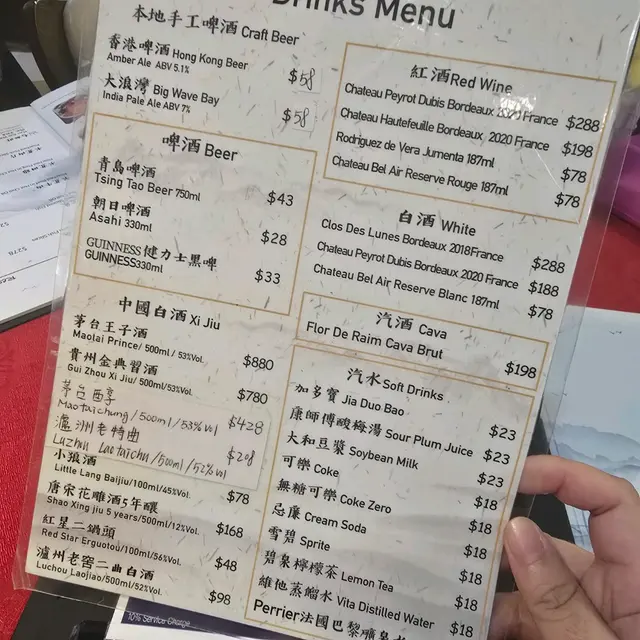 Drinks Menu
本地手工啤酒 Craft Beer
香港啤酒 Hong Kong Beer
Amber Ale ABV 5.1%
$58
大浪灣 Big Wave Bay
India Pale Ale ABV 7%
$58
啤酒 Beer
青島啤酒
Tsing Tao Beer 750ml
$43
朝日啤酒
Asahi 330ml
$28
GUINNESS 健力士黑啤
GUINNESS330ml
$33
中國白酒 Xi Jiu
茅台王子酒
Maotai Prince/ 500ml / 53%Vol.
$880
貴州金典習酒
Gui Zhou Xi Jiu/ 500ml/53%Vol.
$780
茅台酉享
Maotaichung/500ml/53%Vol
$428
瀘洲老特曲
Luzhu Laotaichu/500ml/52%Vol
$208
小狼酒
Little Lang Baijiu/100ml/45%Vol.
$78
唐宋花雕酒5年釀
Shao Xing jiu 5 years/500ml/12%Vol.
$168
紅星二鍋頭
Red Star Erguotou/100ml/56%Vol.
$48
瀘州老窖二曲白酒
Luchou Laojiao/500ml/52%Vol.
$98
紅酒Red Wine
Chateau Peyrot Dubis Bordeaux 2020 France $288
Chateau Hautefeuille Bordeaux 2020 France $198
Rodriguez de Vera Jumenta 187ml $78
Chateau Bel Air Reserve Rouge 187ml $78
白酒 White
Clos Des Lunes Bordeaux 2018France $288
Chateau Peyrot Dubis Bordeaux 2020 France $188
Chateau Bel Air Reserve Blanc 187ml $78
汽酒 Cava
Flor De Raim Cava Brut $198
汽水 Soft Drinks
加多寶 Jia Duo Bao $23
康師傅酸梅湯 Sour Plum Juice $23
大和豆漿 Soybean Milk $23
可樂 Coke $18
無糖可樂 Coke Zero $18
忌廉 Cream Soda $18
雪碧 Sprite $18
碧泉檸檬茶 Lemon Tea $18
維他蒸餾水 Vita Distilled Water $18
Perrier法國巴黎礦泉水
10% Service Charge